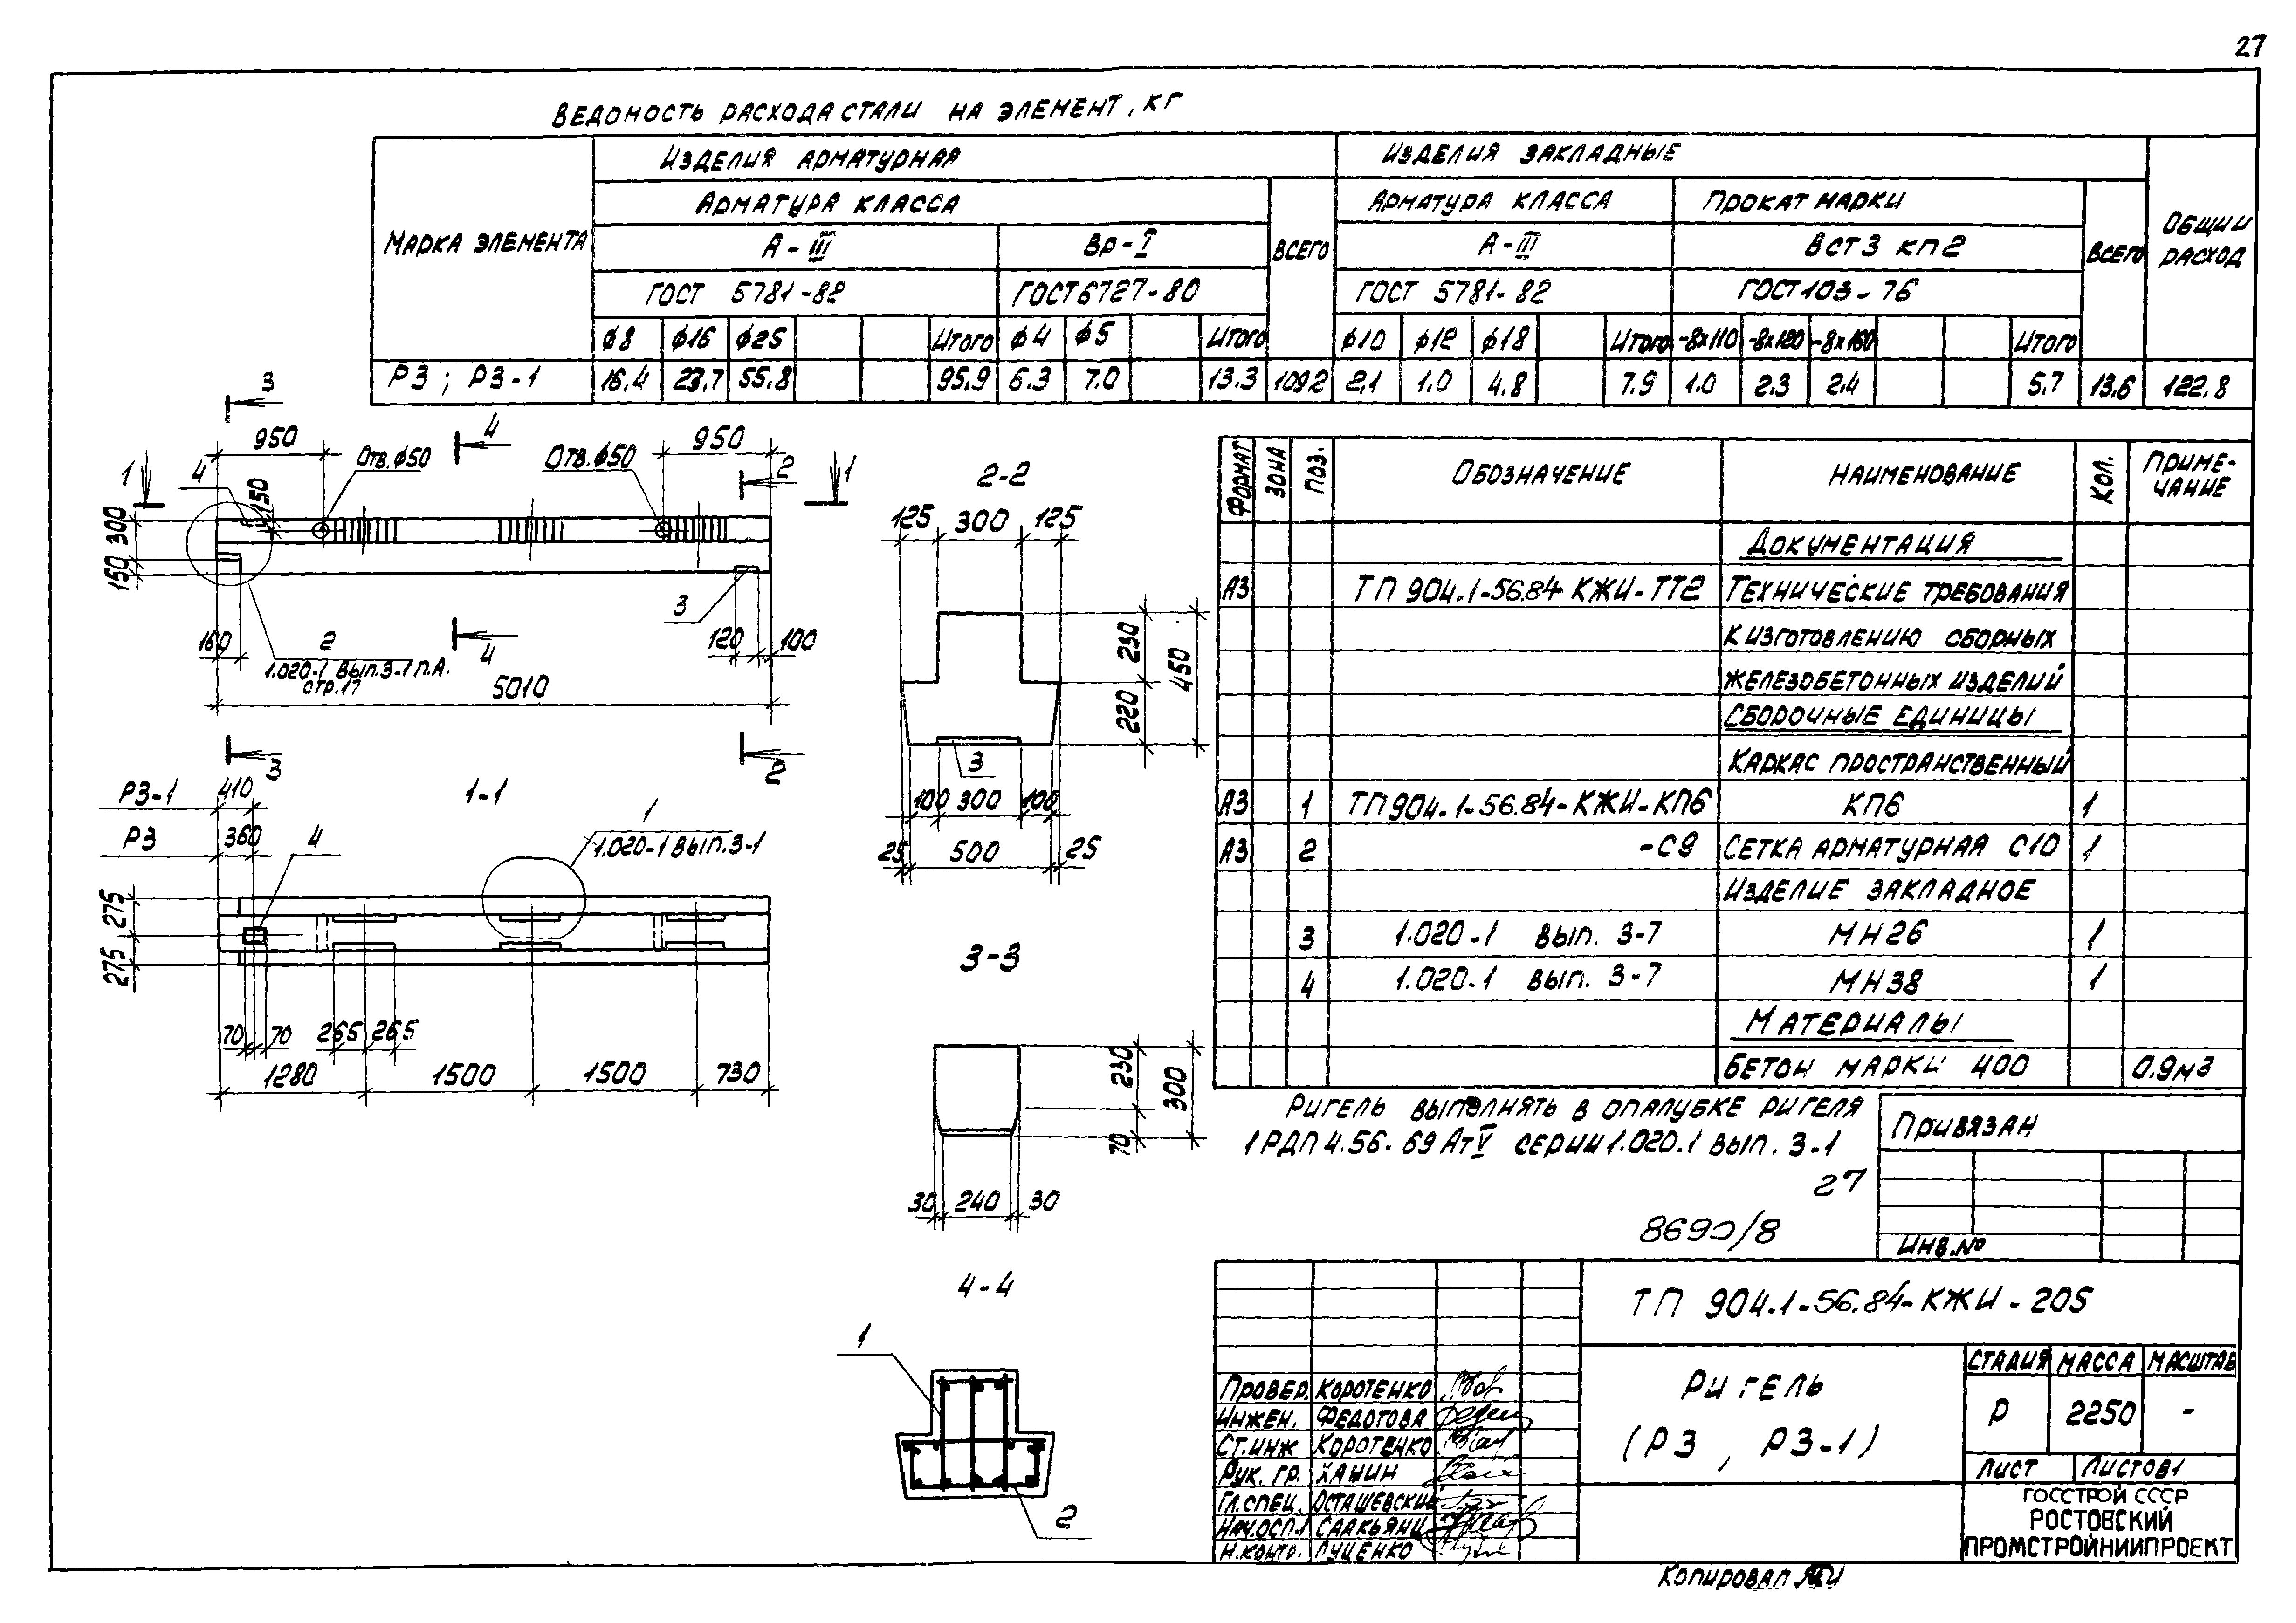 27
ВЕДОМОСТЬ РАСХОДА СТАЛИ НА ЭЛЕМЕНТ, КГ
МАРКА ЭЛЕМЕНТА
ИЗДЕЛИЯ АРМАТУРНАЯ
ИЗДЕЛИЯ ЗАКЛАДНЫЕ
ОБЩИЙ РАСХОД
АРМАТУРА КЛАССА
ВСЕГО
АРМАТУРА КЛАССА
ПРОКАТ МАРКИ
ВСЕГО
А-III
Вр-I
А-III
ВСт3 кп2
ГОСТ 5781-82
ГОСТ 6727-80
ГОСТ 5781-82
ГОСТ 103-76
ϕ8 ϕ16 ϕ25 Итого ϕ4 ϕ5 Итого ϕ10 ϕ12 ϕ18 Итого -8х110 -8х120 -8х160 Итого
Р3 ; Р3-1 16.4 23.7 55.8 95.9 6.3 7.0 13.3 109.2 2,1 1.0 4.8 7.9 1.0 2.3 2.4 5.7 13.6 122.8
3
950
4
950
1
4
Отв. ϕ50
Отв. ϕ50
2
1
150
300
150
3
160
2
1.020-1 Вып.3-7 п.А.
стр.17
4
120
100
5010
3
2
Р3-1
410
1-1
Р3
360
4
1
1.020-1 Вып.3-1
275
275
70 70 265 265
1280 1500 1500 730
2-2
125 300 125
230
220
450
3
100 300 100
25 500 25
3-3
230
70
300
30 240 30
4-4
1
2
ФОРМАТ ЗОНА ПОЗ. ОБОЗНАЧЕНИЕ НАИМЕНОВАНИЕ КОЛ. ПРИМЕ-
ЧАНИЕ
ДОКУМЕНТАЦИЯ
А3 ТП 904.1-56.84-КЖИ-ТТ2 ТЕХНИЧЕСКИЕ ТРЕБОВАНИЯ
К ИЗГОТОВЛЕНИЮ СБОРНЫХ
ЖЕЛЕЗОБЕТОННЫХ ИЗДЕЛИЙ
СБОРОЧНЫЕ ЕДИНИЦЫ
КАРКАС ПРОСТРАНСТВЕННЫЙ
А3 1 ТП 904.1-56.84-КЖИ-КП6 КП6 1
А3 2 -С9 СЕТКА АРМАТУРНАЯ С10 1
ИЗДЕЛИЕ ЗАКЛАДНОЕ
3 1.020-1 ВЫП. 3-7 МН26 1
4 1.020.1 ВЫП. 3-7 МН38 1
МАТЕРИАЛЫ
БЕТОН МАРКИ 400 0.9м3
РИГЕЛЬ ВЫПОЛНЯТЬ В ОПАЛУБКЕ РИГЕЛЯ
1РДП4.56-69АтV СЕРИИ 1.020.1 ВЫП. 3-1
27
8690/8
ПРИВЯЗАН
ИНВ.№
ТП 904.1-56.84-КЖИ-205
РИГЕЛЬ
(Р3, Р3-1)
СТАДИЯ МАССА МАСШТАБ
Р 2250 -
ЛИСТ ЛИСТОВ 1
ГОССТРОЙ СССР
РОСТОВСКИЙ
ПРОМСТРОЙНИИПРОЕКТ
ПРОВЕР. КОРОТЕНКО
ИНЖЕН. ФЕДОТОВА
СТ.ИНЖ КОРОТЕНКО
РУК. ГР. ХАНИН
ГЛ.СПЕЦ. ОСТАШЕВСКИЙ
НАЧ.ОСП.1 СААКЬЯНЦ
Н.КОНТР. ЛУЦЕНКО
Копировал